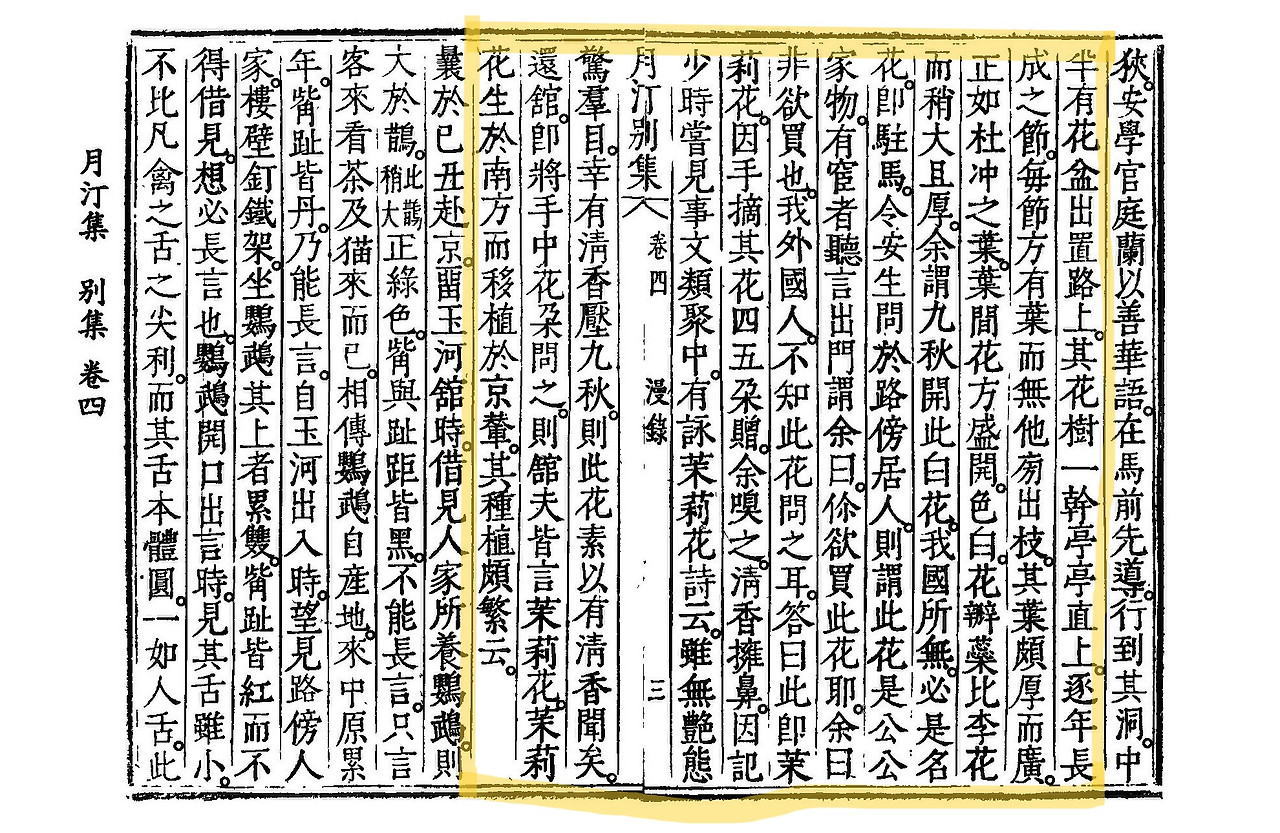 狹。安學官庭蘭以善華語。在馬前先導。行到其洞。中
半有花盆出置路上。其花樹一幹亭亭直上。逐年長
成之節。每節方有葉而無他旁出枝。其葉頗厚而廣。
正如杜冲之葉。葉間花方盛開。色白。花瓣蘂比李花
而稍大且厚。余謂九秋開此白花。我國所無。必是名
花。卽駐馬。令安生問於路傍居人。則謂此花是公公
家物。有宦者聽言出門謂余曰。你欲買此花耶。余曰
非欲買也。我外國人。不知此花問之耳。答曰此卽茉
莉花。因手摘其花四五朶贈。余嗅之。淸香擁鼻。因記
少時嘗見事文類聚中。有詠茉莉花詩云。雖無艶態
月汀別集 卷四 漫錄 三
驚羣目。幸有淸香壓九秋。則此花素以有淸香聞矣。
還舘。卽將手中花朶問之。則舘夫皆言茉莉花。茉莉
花生於南方而移植於京輦。其種植頗繁云。
曩於己丑赴京。留玉河舘時。借見人家所養鸚鵡。則
大於鵲。此鵲稍大正綠色。觜與趾距皆黑。不能長言。只言
客來看茶及猫來而已。相傳鸚鵡自產地。來中原累
年。觜趾皆丹。乃能長言。自玉河出入時。望見路傍人
家。樓壁釘鐵架。坐鸚鵡其上者累雙。觜趾皆紅而不
得借見。想必長言也。鸚鵡開口出言時。見其舌雖小。
不比凡禽之舌之尖利。而其舌本體圓。一如人舌。此
月汀集 別集 卷四